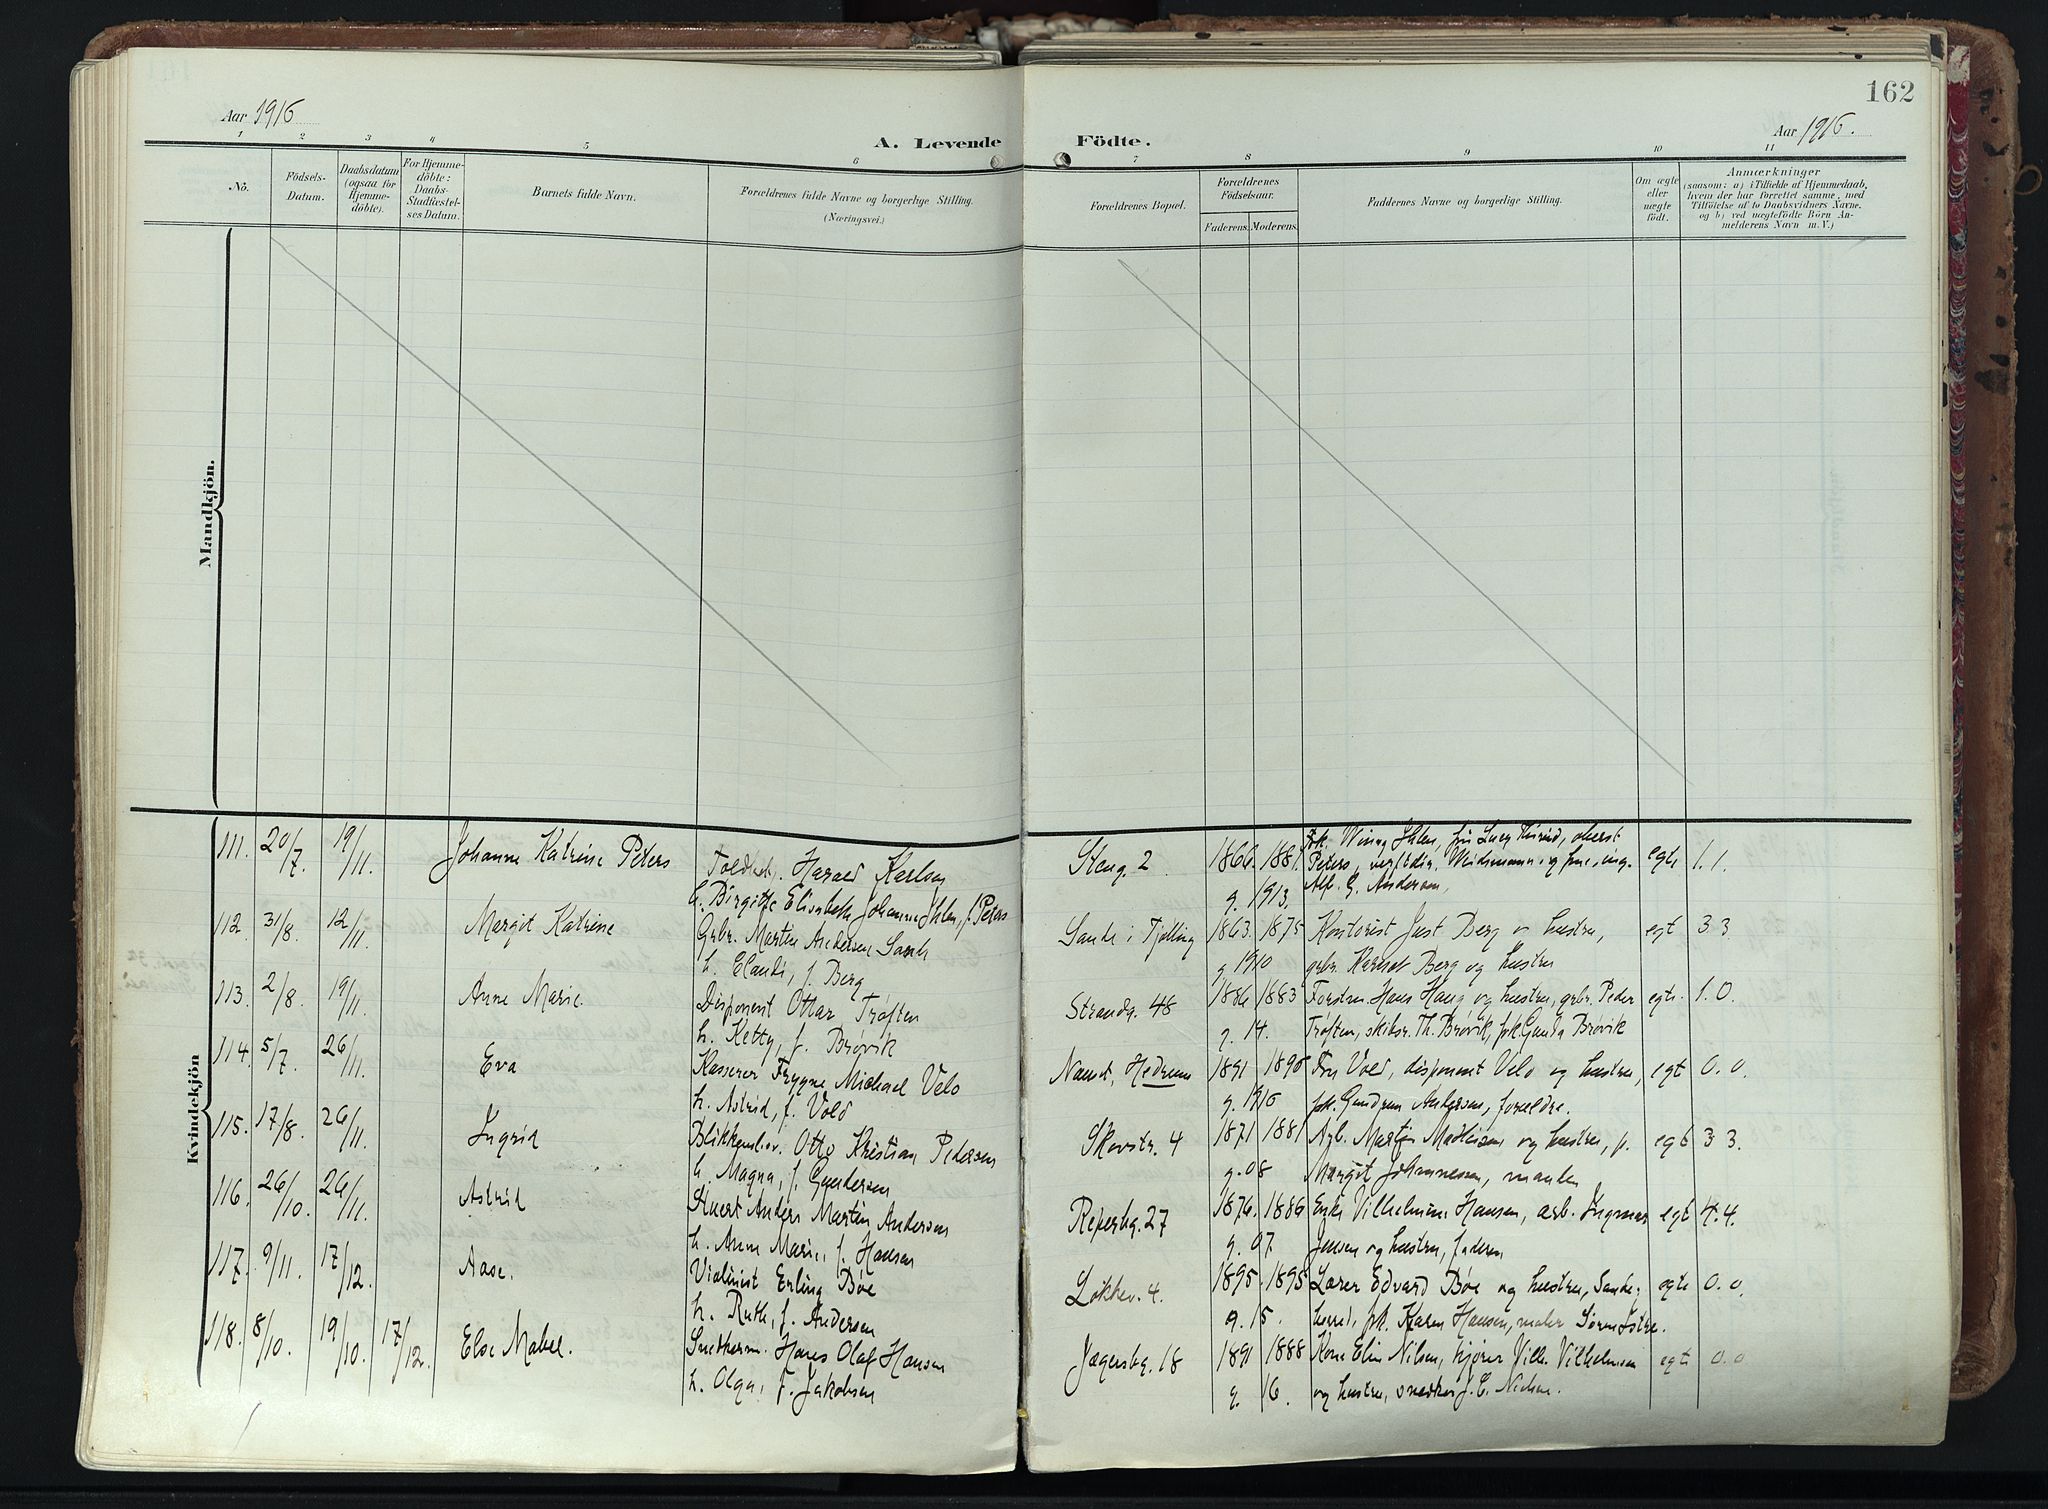 162
Aar 1916
Aar 1916.
A. Levende Födte.
1 2 3 4 5 6 7 8 9 10 11
No.
Födsels-
Datum.
Daabsdatum
(ogsaa for
Hjemme-
döbte).
For Hjemme-
döbte:
Daabs-
Stadfæstel-
ses Datum.
Barnets fulde Navn.
Forældrenes fulde Navne og borgerlige Stilling.
(Næringsvei.)
Forældrenes Bopæl.
Forældrenes
Födselsaar.
Faderens. Moderens.
Faddernes Navne og borgerlige Stilling.
Om ægte
eller
uægte
födt.
Anmærkninger
(saasom: a) i Tilfælde af Hjemmedaab,
hvem der har forrettet samme, med
Tilföielse af to Daabsvidners Navne,
og b) ved uægtefödte Börn An-
melderens Navn m. V.)
Mandkjön.
Kvindekjön
111. 20/7. 19/11. Johanne Katrine Peters Harald Karlson Slang. 2 1866. 1881. egte 1.1.
h. Birgitte Elisabeth Johanne Ihlen, f. Peters g. 1913. Alf. G. Andersen,
112. 31/8. 12/11. Margit Katrine Grbr. Martin Andersen Sande Sande i Tjølling 1863. 1875 Kontorist Just Berg og hustru, egt 3 3.
h. Elandi, f. Berg g. 1910 grbr. Berg og hustru
113. 2/8. 19/11. Anne Marie. Disponent Ottar Trøften Strandg. 48 1886 1883 Forstm. Hans Haug og hustru, grbr. Peder egte. 1.0.
h. Ketty, f. Brøvik g. 14. Trøften, skibsr. Th. Brøvik, frk. Gunda Brøvik
114. 5/7. 26/11. Eva Kasserer Trygve Michael Velo Nanset, Hedrum 1891 1890 Fru Vold, disponent Velo og hustru, egt 0.0.
h. Astrid, f. Vold g. 1916 frk. Gundrun Andersen, forældre.
115. 17/8. 26/11. Ingrid Blikkenslav. Otto Kristian Pedersen Skovstr. 4 1871 1881 Martin Mathisen og hustru, p. egt 3 3.
h. Magna, f. Gundersen g. 08 Margit Johannessen, moren
116. 26/10. 26/11. Astrid Stuert Anders Martin Andersen Reperbg. 27 1876. 1886 Enke Vilhelmine Hansen, arb. Ingmar egt 4.4.
h. Anne Marie, f. Hansen g. 07. Jensen og hustru, faderen
117. 9/11. 17/12. Aase. Violinist Erling Bøe Løkkev. 4. 1895. 1895. Lærer Edvard Bøe og hustru, Sande- egte 0.0.
h. Ruth, f. Andersen g. 15. herred, frk. Karen Hansen, maler
118. 8/10. 19/10. 17/12. Else Mabel. Hans Olaf Hansen Jægersbg. 18 1891 1888 Kone Elin Nilsen, kjører Vilh. Vilhelmsen egte 0.0
h. Olga, f. Jakobsen g. 16. og hustru, snedker J. C. Nielsen.